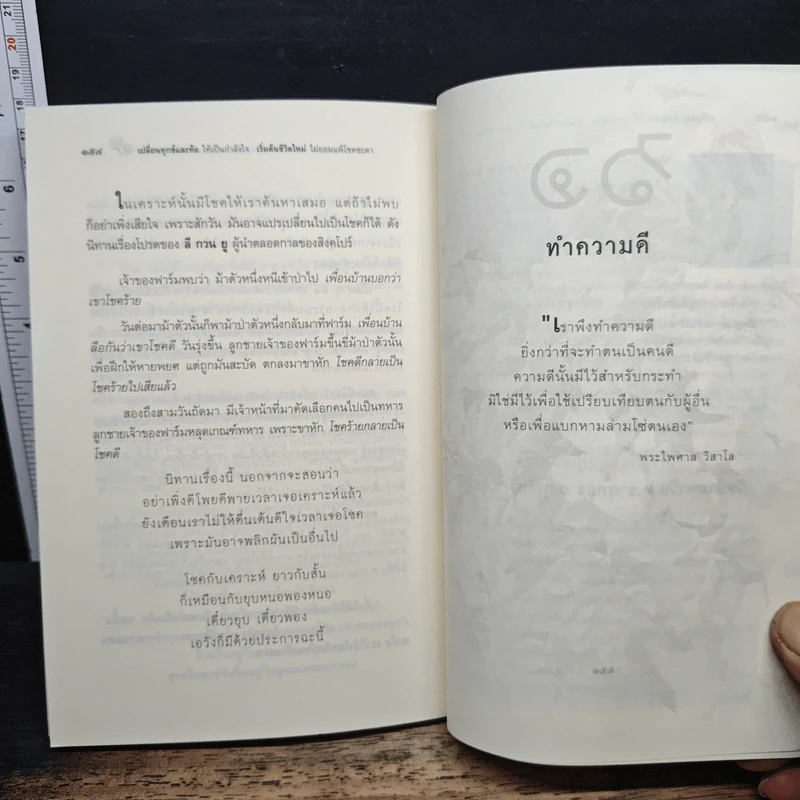 ๑๕๔ เปลี่ยนทุกข์และท้อ ให้เป็นกำลังใจ เริ่มต้นชีวิตใหม่ ไม่ยอมแพ้โชคชะตา
ในเคราะห์นั้นมีโชคให้เราค้นหาเสมอ แต่ถ้าไม่พบ
ก็อย่าเพิ่งเสียใจ เพราะสักวัน มันอาจแปรเปลี่ยนไปเป็นโชคก็ได้ ดัง
นิทานเรื่องโปรดของ ลี กวน ยู ผู้นำตลอดกาลของสิงคโปร์
เจ้าของฟาร์มพบว่า ม้าตัวหนึ่งหนีเข้าป่าไป เพื่อนบ้านบอกว่า
เขาโชคร้าย
วันต่อมาม้าตัวนั้นก็พาม้าป่าตัวหนึ่งกลับมาที่ฟาร์ม เพื่อนบ้าน
ลือกันว่าเขาโชคดี วันรุ่งขึ้น ลูกชายเจ้าของฟาร์มขึ้นขี่ม้าป่าตัวนั้น
เพื่อฝึกให้หายพยศ แต่ถูกมันสะบัด ตกลงมาขาหัก โชคดีกลายเป็น
โชคร้ายไปเสียแล้ว
สองถึงสามวันถัดมา มีเจ้าหน้าที่มาคัดเลือกคนไปเป็นทหาร
ลูกชายเจ้าของฟาร์มหลุดเกณฑ์ทหาร เพราะขาหัก โชคร้ายกลายเป็น
โชคดี
นิทานเรื่องนี้ นอกจากจะสอนว่า
อย่าเพิ่งตีโพยตีพายเวลาเจอเคราะห์แล้ว
ยังเตือนเราไม่ให้ตื่นเต้นดีใจเวลาเจอโชค
เพราะมันอาจพลิกผันเป็นอื่นไป
โชคกับเคราะห์ ยาวกับสั้น
ก็เหมือนกับยุบหนอพองหนอ
เดี๋ยวยุบ เดี๋ยวพอง
เอวังก็มีด้วยประการฉะนี้
๖๑
ทำความดี
"เราพึงทำความดี
ยิ่งกว่าที่จะทำตนเป็นคนดี
ความดีนั้นมีไว้สำหรับกระทำ
มิใช่มีไว้เพื่อใช้เปรียบเทียบตนกับผู้อื่น
หรือเพื่อแบกหามล่ามโซ่ตนเอง"
พระไพศาล วิสาโล
๑๕๕
21
20
19
18
17
16
6
5